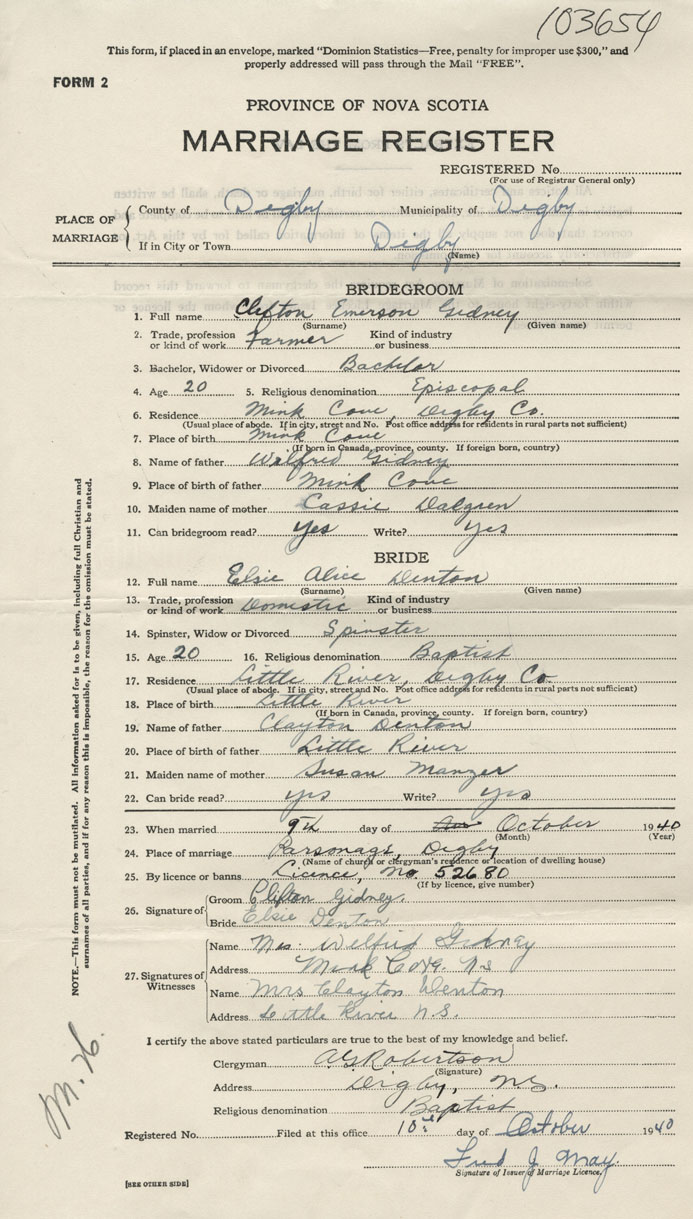 103654
This form, if placed in an envelope, marked "Dominion Statistics—Free, penalty for improper use $300," and
properly addressed will pass through the Mail "FREE".
FORM 2
PROVINCE OF NOVA SCOTIA
MARRIAGE REGISTER
REGISTERED No.
(For use of Registrar General only)
PLACE OF MARRIAGE
County of Digby Municipality of Digby
If in City or Town Digby
(Name)
BRIDEGROOM
1. Full name Clifton Emerson Gidney
(Surname) (Given name)
2. Trade, profession or kind of work Farmer Kind of industry or business
3. Bachelor, Widower or Divorced Bachelor
4. Age 20 5. Religious denomination Episcopal
6. Residence Mink Cove, Digby Co.
(Usual place of abode. If in city, street and No. Post office address for residents in rural parts not sufficient)
7. Place of birth Mink Cove
(If born in Canada, province, county. If foreign born, country)
8. Name of father Wilfred Gidney
9. Place of birth of father Mink Cove
10. Maiden name of mother Cassie Dalgren
11. Can bridegroom read? Yes Write? Yes
BRIDE
12. Full name Elsie Alice Denton
(Surname) (Given name)
13. Trade, profession or kind of work Domestic Kind of industry or business
14. Spinster, Widow or Divorced Spinster
15. Age 20 16. Religious denomination Baptist
17. Residence Little River, Digby Co.
(Usual place of abode. If in city, street and No. Post office address for residents in rural parts not sufficient)
18. Place of birth Little River
(If born in Canada, province, county. If foreign born, country)
19. Name of father Clayton Denton
20. Place of birth of father Little River
21. Maiden name of mother Susan Manzer
22. Can bride read? yes Write? yes
23. When married 9th day of October 1940
(Month) (Year)
24. Place of marriage Parsonage, Digby
(Name of church or clergyman's residence or location of dwelling house)
25. By licence or banns Licence, No. 52680
(If by licence, give number)
26. Signature of
Groom Clifton Gidney.
Bride Elsie Denton
27. Signatures of Witnesses
Name Mrs. Wilfrid Gidney
Address Mink Cove. N S
Name Mrs Clayton Denton
Address Little River N.S.
I certify the above stated particulars are true to the best of my knowledge and belief.
Clergyman A G Robertson
(Signature)
Address Digby, N.S.
Religious denomination Baptist
Registered No. Filed at this office 10 day of October 1940
Fred J May.
Signature of Issuer of Marriage Licence.
[SEE OTHER SIDE]
NOTE.—This form must not be mutilated. All information asked for is to be given, including full Christian and
surnames of all parties, and if for any reason this is impossible, the reason for the omission must be stated.